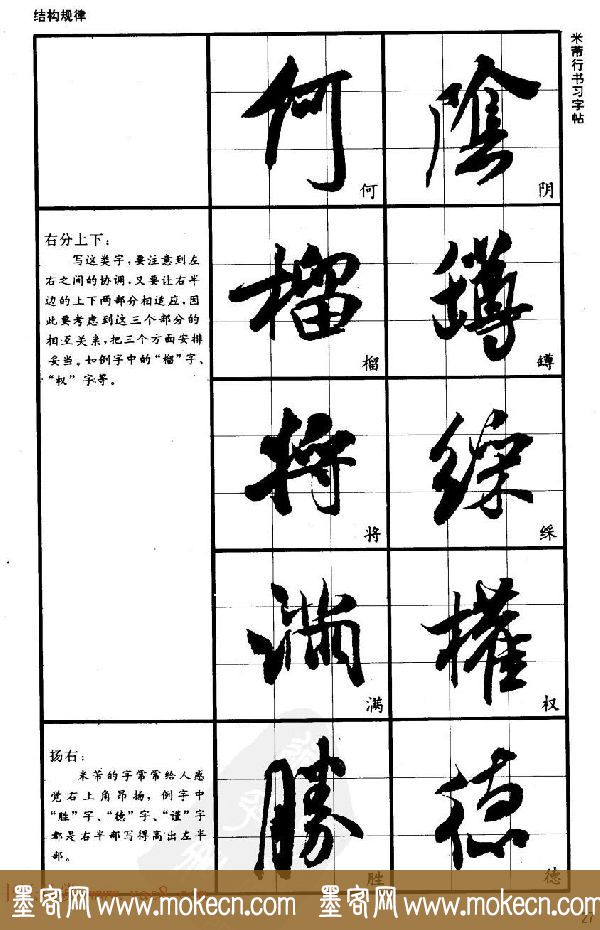 结构规律
米芾行书习字帖
何
何
陰
阴
右分上下：
写这类字，要注意到左
右之间的协调，又要让右半
边的上下两部分相适应，因
此要考虑到这三个部分的
相互关系，把三个方面安排
妥当。如例字中的“榴”字、
“权”字等。
榴
榴
鐏
将
将
綵
綵
满
满
權
权
扬右：
米芾的字常常给人感
觉右上角昂扬，例字中
“胜”字、“德”字、“谨”字
都是右半部写得高出左半
部。
勝
胜
德
德
墨客网 www.mokecn.com 墨客网 www.mokecn.com
27